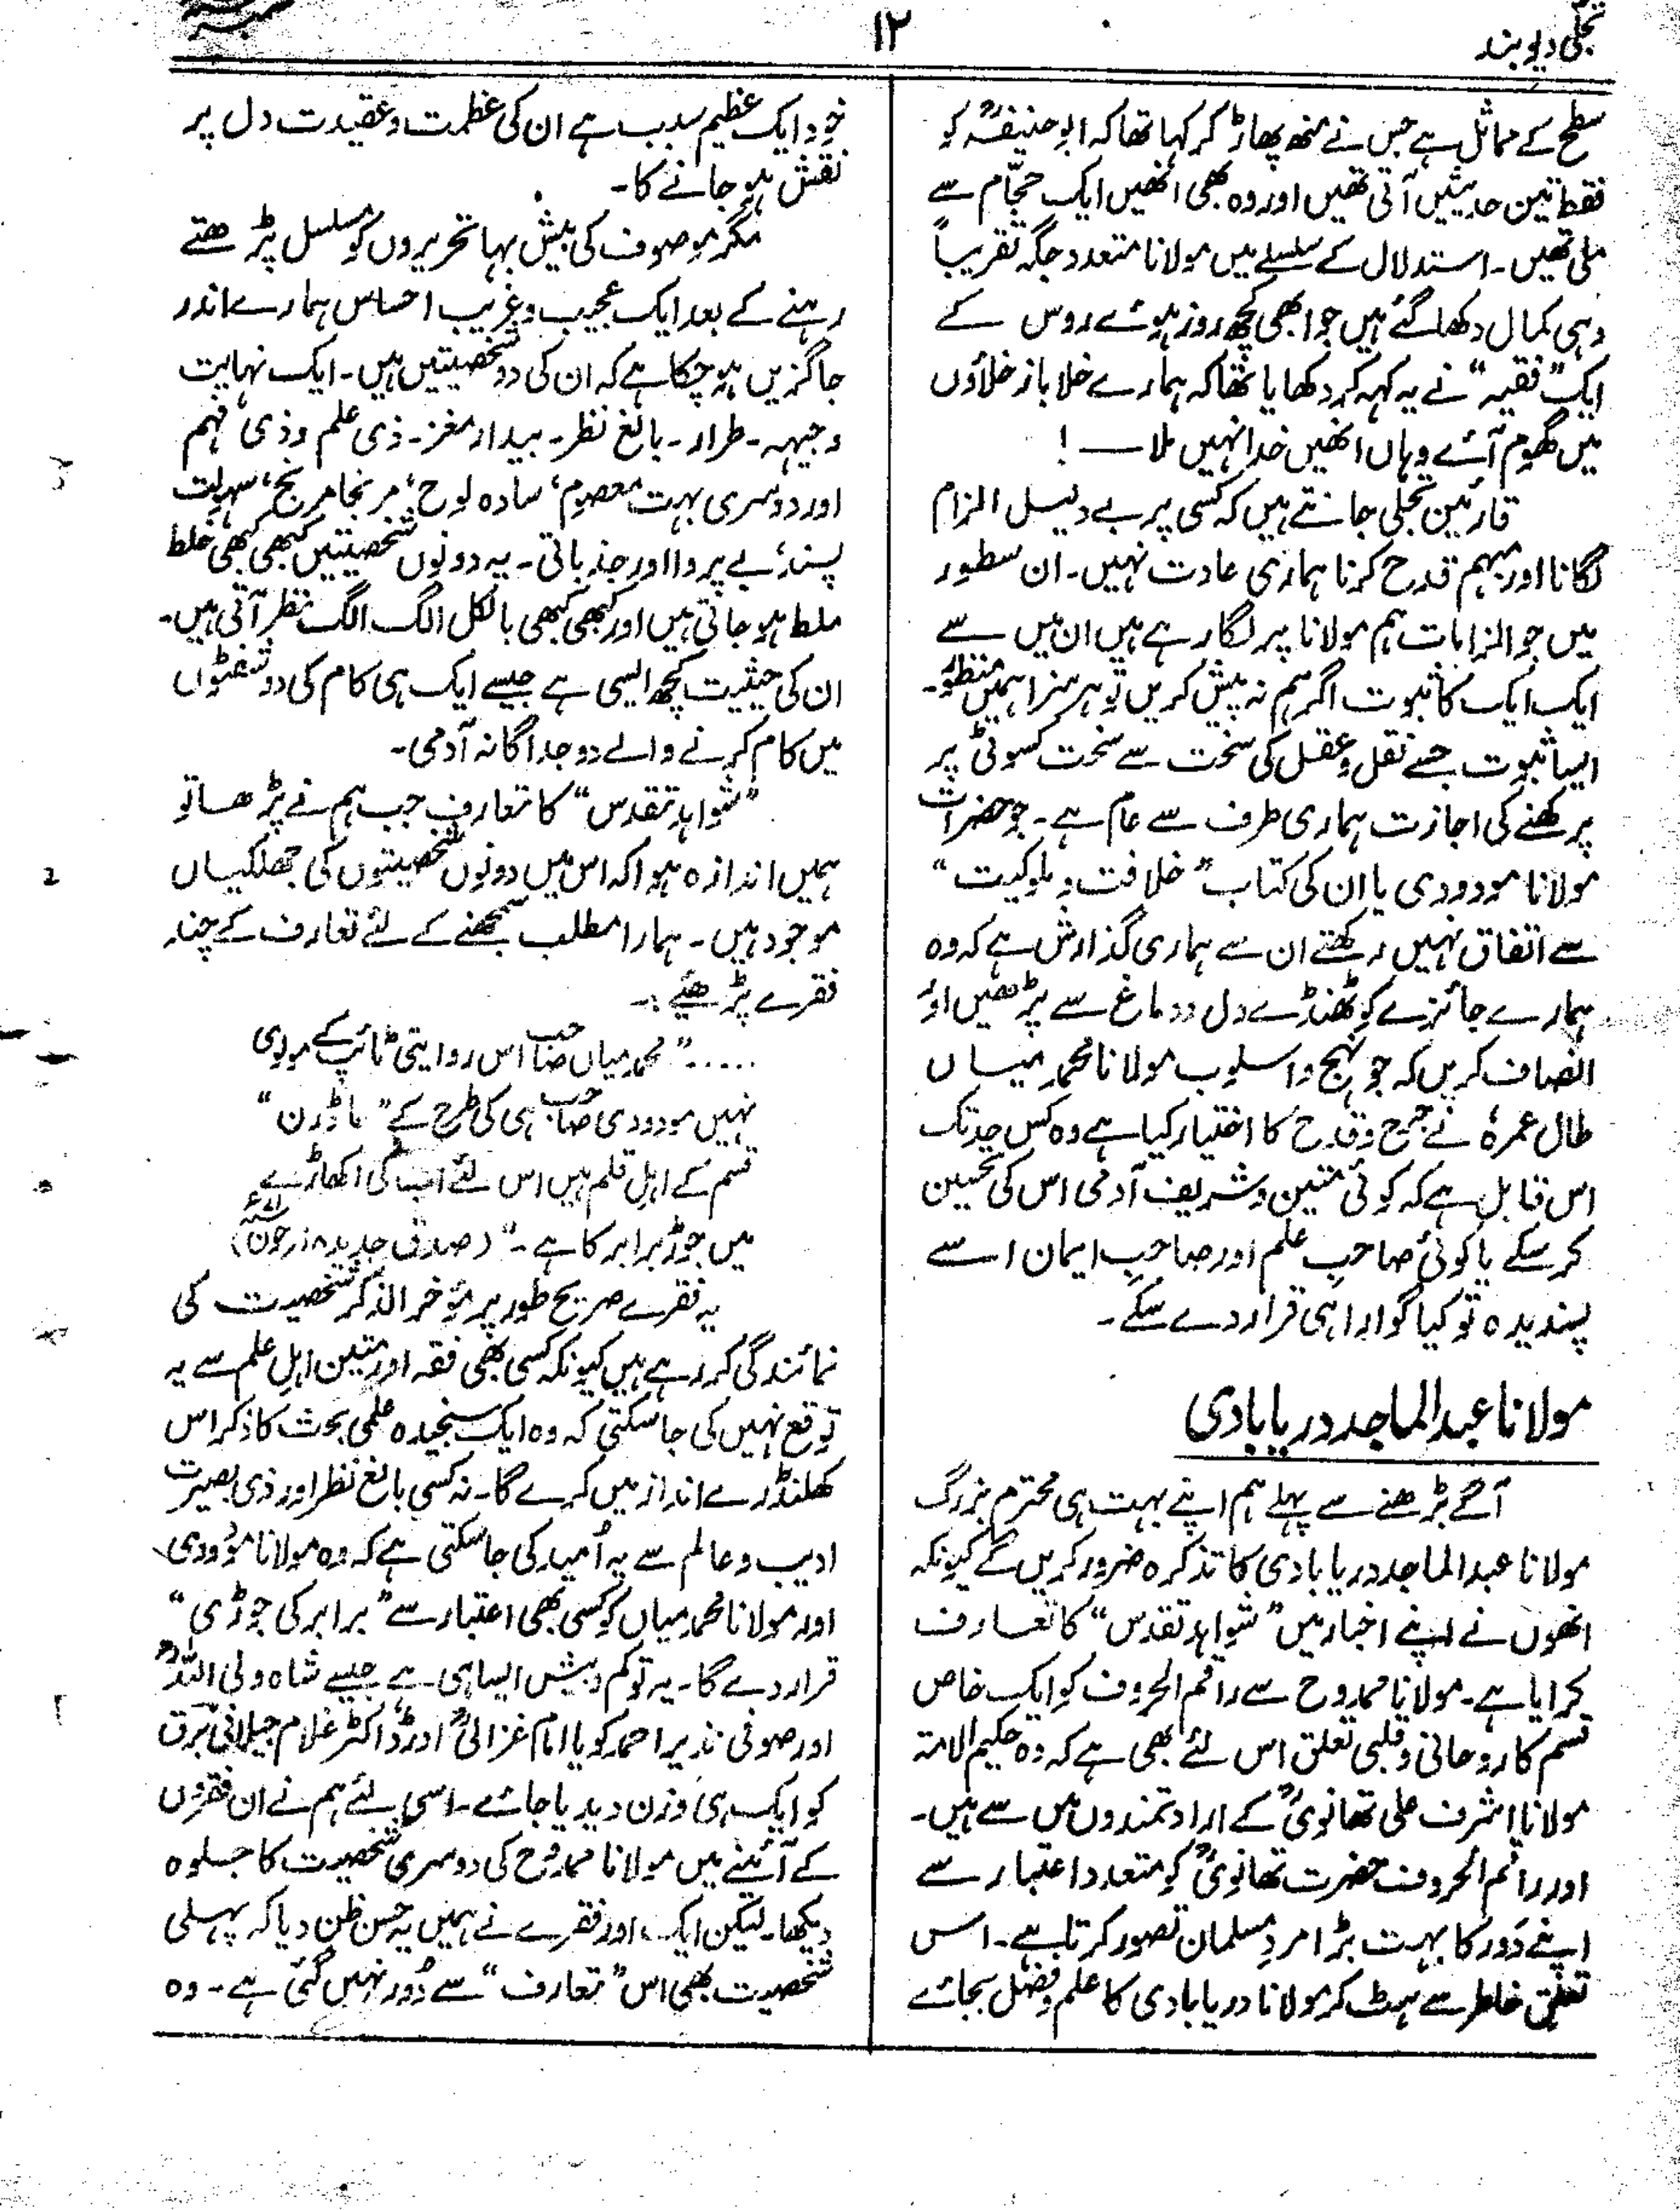 تجلی دیوبند
۱۲
سطح کے مماثل ہے جس نے منھ پھاڑ کر کہا تھا کہ ابو حنیفہؒ کو
فقط تین حدیثیں آتی تھیں اور وہ بھی انھیں ایک حجّام سے
ملی تھیں۔ استدلال کے سلسلے میں مولانا متعدد جگہ تقریباً
وہی کمال دکھلا گئے ہیں جو ابھی کچھ روز ہوئے روس کے
ایک "فقیہ" نے یہ کہہ کر دکھایا تھا کہ ہمارے خلا باز خلاؤں
میں گھوم آئے وہاں انھیں خدا نہیں ملا ــــ !
قارئین تجلی جانتے ہیں کہ کسی پر بے دلیل الزام
لگانا اور مبہم قدح کرنا ہماری عادت نہیں۔ ان سطور
میں جو الزامات ہم مولانا پر لگا رہے ہیں ان میں سے
ایک ایک کا ثبوت اگر ہم نہ پیش کریں تو ہر سزا ہمیں منظور۔
ایسا ثبوت جسے نقل و عقل کی سخت سے سخت کسوٹی پر
پرکھنے کی اجازت ہماری طرف سے عام ہے۔ جو حضرات
مولانا مودودی یا ان کی کتاب "خلافت و ملوکیت"
سے اتفاق نہیں رکھتے ان سے ہماری گذارش ہے کہ وہ
ہمارے جائزے کو ٹھنڈے دل و دماغ سے پڑھیں اور
انصاف کریں کہ جو نہج و اسلوب مولانا محمد میاں
طال عمرہٗ نے جرح و قدح کا اختیار کیا ہے وہ کس حد تک
اس قابل ہے کہ کوئی متین و شریف آدمی اس کی تحسین
کر سکے یا کوئی صاحبِ علم اور صاحبِ ایمان اسے
پسندیدہ تو کیا گوارا ہی قرار دے سکے۔
مولانا عبد الماجد دریابادی
آگے بڑھنے سے پہلے ہم اپنے بہت ہی محترم بزرگ
مولانا عبد الماجد دریابادی کا تذکرہ ضرور کریں گے کیونکہ
انھوں نے اپنے اخبار میں "شواہد تقدس" کا تعارف
کرایا ہے۔ مولانا ممدوح سے راقم الحروف کو ایک خاص
قسم کا روحانی و قلبی تعلق اس لئے بھی ہے کہ وہ حکیم الامتہ
مولانا اشرف علی تھانویؒ کے ارادتمندوں میں سے ہیں۔
اور راقم الحروف حضرت تھانویؒ کو متعدد اعتبار سے
اپنے دَور کا بہت بڑا مردِ مسلمان تصور کرتا ہے۔ اس
تعلق خاطر سے ہٹ کر مولانا دریابادی کا علم و فضل بجائے
خود ایک عظیم سبب ہے ان کی عظمت و عقیدت دل پر
نقش ہو جانے کا۔
مگر موصوف کی بیش بہا تحریروں کو مسلسل پڑھتے
رہنے کے بعد ایک عجیب و غریب احساس ہمارے اندر
جاگزیں ہو چکا ہے کہ ان کی دو شخصیتیں ہیں۔ ایک نہایت
وجیہہ۔ طرار۔ بالغ نظر۔ بیدار مغز۔ ذی علم و ذی فہم
اور دوسری بہت معصوم، سادہ لوح، مرنجا مرنج، سہولت
پسند، بے پروا اور جذباتی۔ یہ دونوں شخصیتیں کبھی کبھی خلط
ملط ہو جاتی ہیں اور کبھی کبھی بالکل الگ الگ نظر آتی ہیں۔
ان کی حیثیت کچھ ایسی ہے جیسے ایک ہی کام کی دو شفٹوں
میں کام کرنے والے دو جداگانہ آدمی۔
"شواہد تقدس" کا تعارف جب ہم نے پڑھا تو
ہمیں اندازہ ہوا کہ اس میں دونوں شخصیتوں کی جھلکیاں
موجود ہیں۔ ہمارا مطلب سمجھنے کے لئے تعارف کے چند
فقرے پڑھئیے:۔
....." محمد میاں صاحب اس روایتی ٹائپ کے مولوی
نہیں مودودی صاحب ہی کی طرح کے "ماڈرن"
قسم کے اہلِ قلم ہیں اس لئے اب کی اکھاڑے
میں جوڑ برابر کا ہے۔" (صدق جدید ۸؍جون ۷۱ء)
یہ فقرے صریح طور پر مؤخر الذکر شخصیت کی
نمائندگی کر رہے ہیں کیونکہ کسی بھی ثقہ اور متین اہلِ علم سے یہ
توقع نہیں کی جا سکتی کہ وہ ایک سنجیدہ علمی بحث کا ذکر اس
کھلنڈرے انداز میں کرے گا۔ نہ کسی بالغ نظر اور ذی بصیرت
ادیب و عالم سے یہ اُمید کی جا سکتی ہے کہ وہ مولانا مودودی
اور مولانا محمد میاں کو کسی بھی اعتبار سے "برابر کی جوڑی"
قرار دے گا۔ یہ تو کم و بیش ایسا ہی ہے جیسے شاہ ولی اللہؒ
اور صوفی نذیر احمد کو یا امام غزالیؒ اور ڈاکٹر غلام جیلانی برق
کو ایک ہی وزن دیدیا جائے۔ اسی لئے ہم نے ان فقروں
کے آئینے میں مولانا ممدوح کی دوسری شخصیت کا جلوہ
دیکھا۔ لیکن ایک اور فقرے نے ہمیں یہ حسن ظن دیا کہ پہلی
شخصیت بھی اس "تعارف" سے دُور نہیں گئی ہے۔ وہ